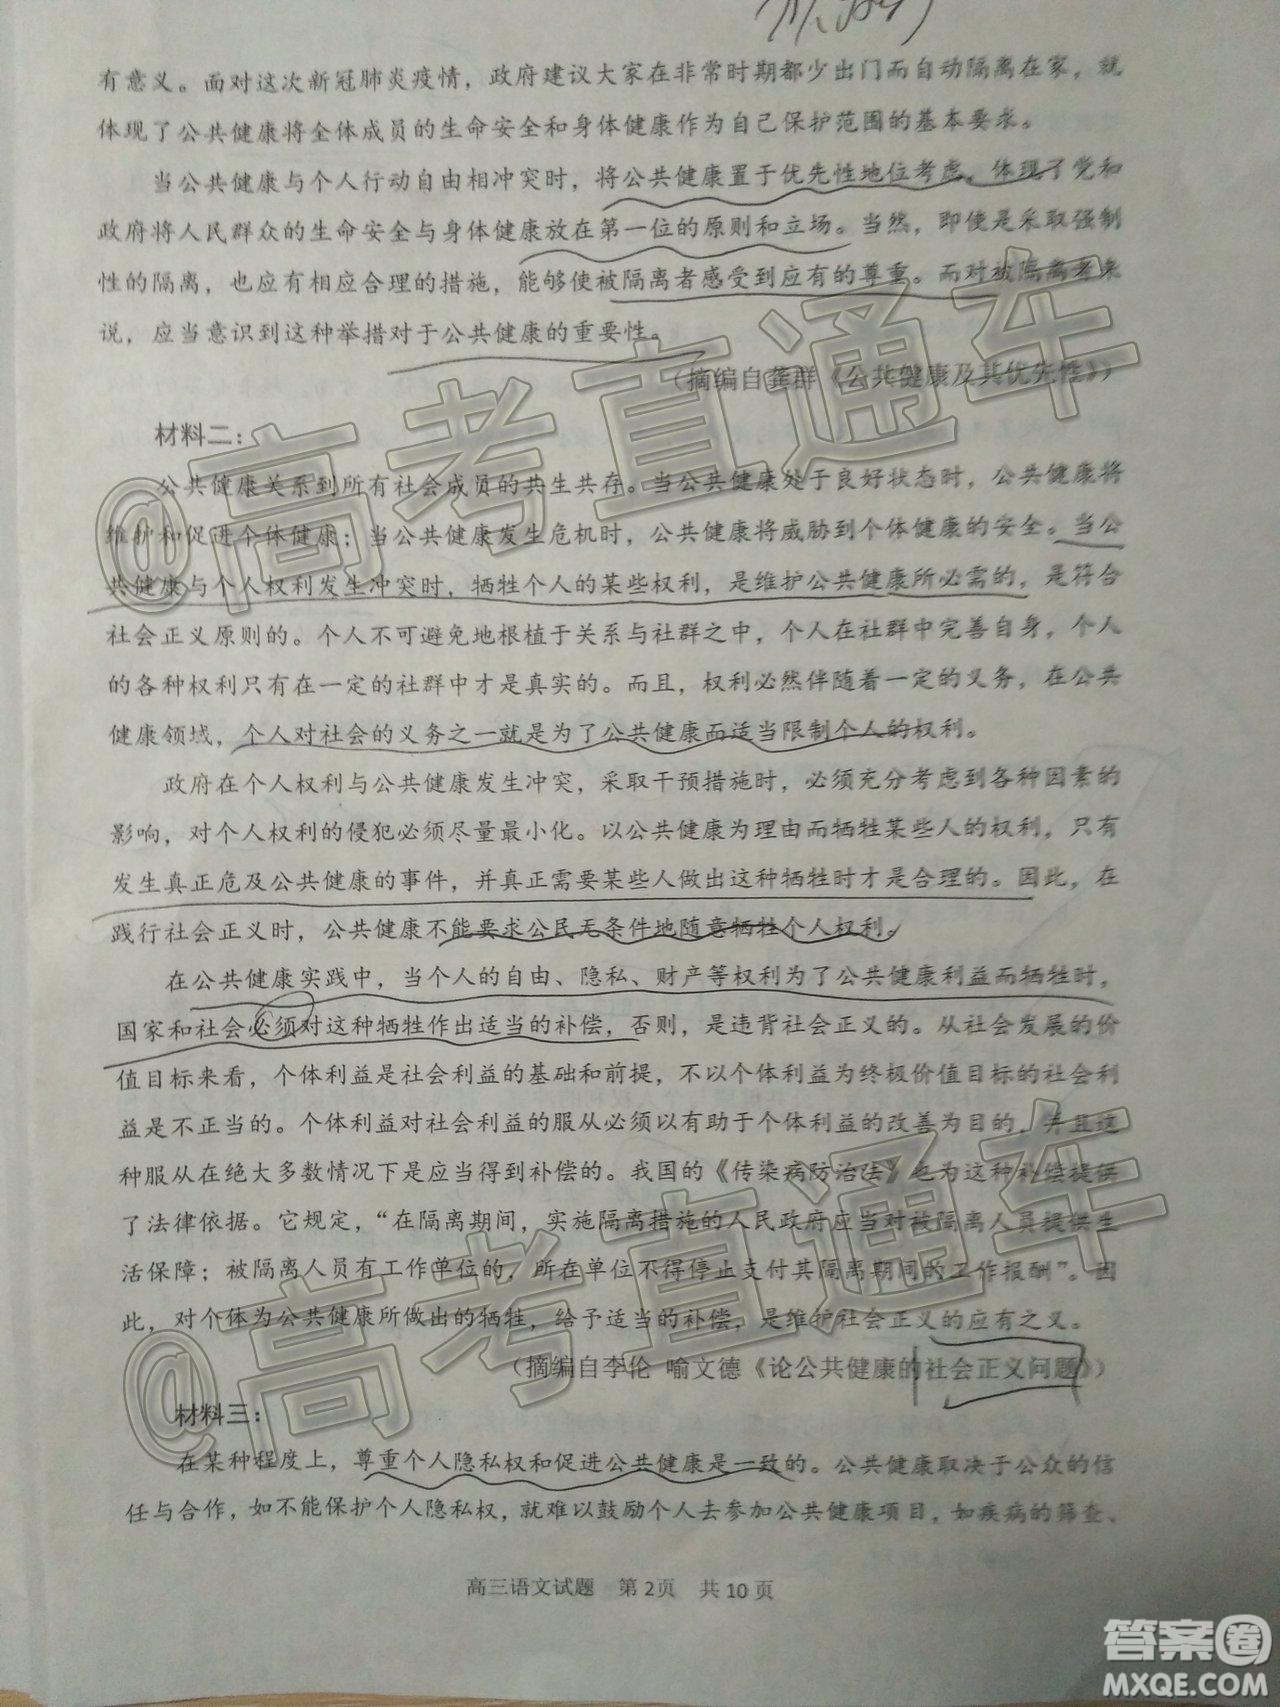 有意义。面对这次新冠肺炎疫情，政府建议大家在非常时期都少出门而自动隔离在家，就
体现了公共健康将全体成员的生命安全和身体健康作为自己保护范围的基本要求。
当公共健康与个人行动自由相冲突时，将公共健康置于优先性地位考虑，体现了党和
政府将人民群众的生命安全与身体健康放在第一位的原则和立场。当然，即使是采取强制
性的隔离，也应有相应合理的措施，能够使被隔离者感受到应有的尊重。而对被隔离者来
说，应当意识到这种举措对于公共健康的重要性。
（摘编自龚群《公共健康及其优先性》）
材料二：
公共健康关系到所有社会成员的共生共存。当公共健康处于良好状态时，公共健康将
维护和促进个体健康；当公共健康发生危机时，公共健康将威胁到个体健康的安全。当公
共健康与个人权利发生冲突时，牺牲个人的某些权利，是维护公共健康所必需的，是符合
社会正义原则的。个人不可避免地根植于关系与社群之中，个人在社群中完善自身，个人
的各种权利只有在一定的社群中才是真实的。而且，权利必然伴随着一定的义务，在公共
健康领域，个人对社会的义务之一就是为了公共健康而适当限制个人的权利。
政府在个人权利与公共健康发生冲突，采取干预措施时，必须充分考虑到各种因素的
影响，对个人权利的侵犯必须尽量最小化。以公共健康为理由而牺牲某些人的权利，只有
发生真正危及公共健康的事件，并真正需要某些人做出这种牺牲时才是合理的。因此，在
践行社会正义时，公共健康不能要求公民无条件地随意牺牲个人权利。
在公共健康实践中，当个人的自由、隐私、财产等权利为了公共健康利益而牺牲时，
国家和社会必须对这种牺牲作出适当的补偿，否则，是违背社会正义的。从社会发展的价
值目标来看，个体利益是社会利益的基础和前提，不以个体利益为终极价值目标的社会利
益是不正当的。个体利益对社会利益的服从必须以有助于个体利益的改善为目的，并且这
种服从在绝大多数情况下是应当得到补偿的。我国的《传染病防治法》也为这种补偿提供
了法律依据。它规定，“在隔离期间，实施隔离措施的人民政府应当对被隔离人员提供生
活保障；被隔离人员有工作单位的，所在单位不得停止支付其隔离期间的工作报酬”。因
此，对个体为公共健康所做出的牺牲，给予适当的补偿，是维护社会正义的应有之义。
（摘编自李伦 喻文德《论公共健康的社会正义问题》）
材料三：
在某种程度上，尊重个人隐私权和促进公共健康是一致的。公共健康取决于公众的信
任与合作，如不能保护个人隐私权，就难以鼓励个人去参加公共健康项目，如疾病的筛查、
高三语文试题 第2页 共10页
@高考直通车
@高考直通车
答案圈
MXQE.COM